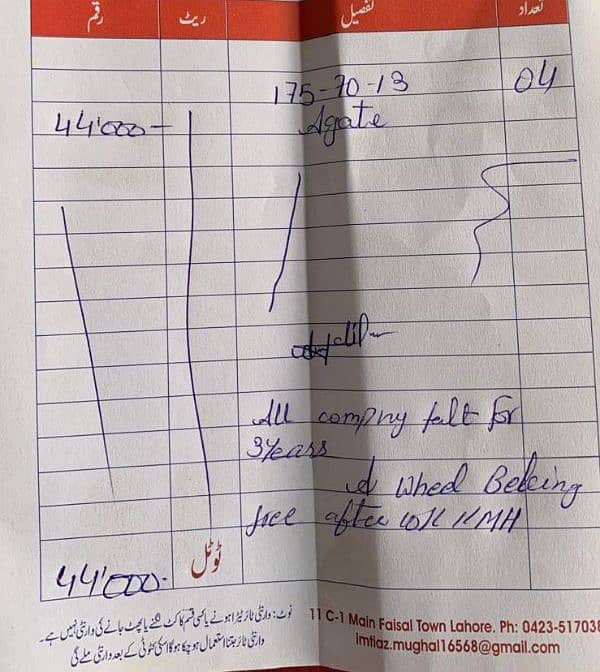 تعداد تفصیل ریٹ رقم
175-70-13 04
Agate
44'000-
All compny falt for
3 Years
Wheel Beleing
free after 10K KMH
ٹوٹل
44'000-
11 C-1 Main Faisal Town Lahore. Ph: 0423-517038
imtiaz.mughal16568@gmail.com
نوٹ: وارنٹی ٹائر ٹیڑا ہونے یا کسی قسم کا کٹ لگنے یا پھٹ جانے کی وارنٹی نہیں ہے۔
وارنٹی ٹائر جتنا استعمال ہو چکا ہو گا اسکی کٹوتی کے بعد وارنٹی ملے گی